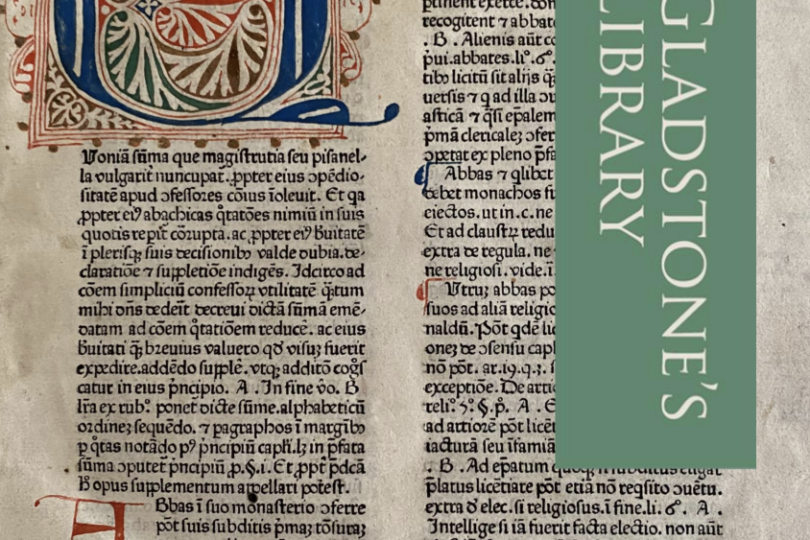 Voniā sūma que magistrutia seu pisanel-
la vulgarit᷑ nuncupat᷑. ꝓpter eius ↄpēdio-
sitatē apud ↄfessores cōius īoleuit. Et qꝛ
ꝓpter eiꝰ abachicas q̄tatōes nimiū in suis
quotis repit᷑ cōrupta. ac ꝓpter eiꝰ ƀuitatē
ī plerisqꝫ suis decisionibꝰ valde dubia. de-
claratiōe ⁊ suppletiōe indigēs. Idcirco ad
cōem simpliciū confessoꝝ vtilitatē q̄tum
mihi dn̄s dederit decreui dictā sūmā emē-
datam ad cōem q̄tatiōem reducē. ac eius
ƀuitati qꝫ breuius valuero qđ visuꝫ fuerit
expedire. addēdo supplē. vtqꝫ additō cogs̄
catur in eius pͥncipio. A . In fine v̊o. B
lr̄a ex rubꝰ. ponet᷑ dicte sūme. alphabeticū
ordineꝫ sequēdo. ⁊ pagraphos ī margībꝰ
p q̄tas notādo pꝰ pͥncipiū capli. lꝫ in p̄fata
sūma ↄputet᷑ pͥncipiū ꝓ. §. i. Et ꝓpt᷑ p̄dcā
ƀ opus supplementum appellari potest.
Bbas ī suo monasterio ↄferre
pōt suis subditis pͥmaꝫ tōsuraꝫ
recogitent ⁊ abbate
. B . Alienis aūt co
pͥui. abbates. liͦ. 6ͦ.
tibꝰ licitū sit alijs q̄
uersis ⁊ q ad illa
asticā ⁊ q̄si epalem
pͥmā clericaleꝫ ↄfer
ↄpetat ex pleno p̄fa
Abbas ⁊ quilibet
debet monachos fu
eiectos. ut in. c. ne
Et ad claustꝝ redu
extra de regula. ne
ne religiosi. vide. ī
Vtruꝫ abbas po
suos ad aliā religio
naldū. Pōt qdē lic
oneꝫ de ↄsensu capl
nō pōt. ar. 19. q. 3.
exceptiōe. De artic
reli. 5ͦ. §. pͦ. A . E
ad artiorē pōt licet
iacturā seu īfamiā
. B . Ad ep̄atum
p̄latus licētiare pōt etiā nō reqsito ↄuētu.
extra đ elec. si religiosus. ī fine. li. 6ͦ. A .
Intellige si iā fuerit facta electio. non aūt
GLADSTONE'S
LIBRARY